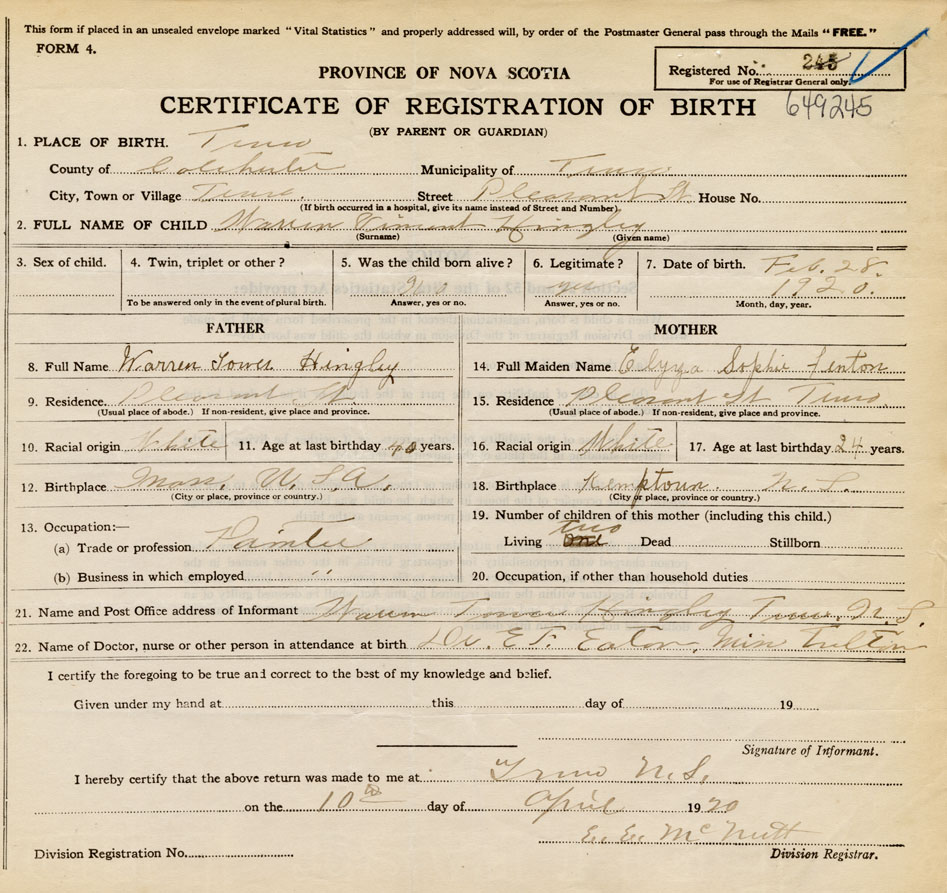 This form if placed in an unsealed envelope marked "Vital Statistics" and properly addressed will, by order of the Postmaster General pass through the Mails "FREE."
FORM 4.
PROVINCE OF NOVA SCOTIA
Registered No. 245
For use of Registrar General only.
CERTIFICATE OF REGISTRATION OF BIRTH 649245
(BY PARENT OR GUARDIAN)
1. PLACE OF BIRTH. Truro
County of Colchester Municipality of Truro
City, Town or Village Truro. Street Pleasant St House No.
(If birth occurred in a hospital, give its name instead of Street and Number)
2. FULL NAME OF CHILD Warren Vincent Hingley
(Surname) (Given name)
3. Sex of child. 4. Twin, triplet or other? 5. Was the child born alive? 6. Legitimate? 7. Date of birth. Feb. 28.
yes 1920.
To be answered only in the event of plural birth. Answer, yes or no. Answer, yes or no. Month, day, year.
FATHER MOTHER
8. Full Name Warren Tower Hingley 14. Full Maiden Name Sophie Fenton
9. Residence. Pleasant St 15. Residence Pleasant St Truro
(Usual place of abode.) If non-resident, give place and province. (Usual place of abode.) If non-resident, give place and province.
10. Racial origin White 11. Age at last birthday 40 years. 16. Racial origin White 17. Age at last birthday 24 years.
12. Birthplace Mass. U.S.A. 18. Birthplace Kemptown. N.S.
(City or place, province or country.) (City or place, province or country.)
13. Occupation:— 19. Number of children of this mother (including this child.)
(a) Trade or profession Painter Living two one Dead Stillborn
(b) Business in which employed " 20. Occupation, if other than household duties
21. Name and Post Office address of Informant Warren Tower Hingley Truro, N.S.
22. Name of Doctor, nurse or other person in attendance at birth Dr. E. F. Eaton, Miss
I certify the foregoing to be true and correct to the best of my knowledge and belief.
Given under my hand at this day of 19
Signature of Informant.
I hereby certify that the above return was made to me at Truro N.S.
on the 10th day of April 1920
McNutt
Division Registration No. Division Registrar.